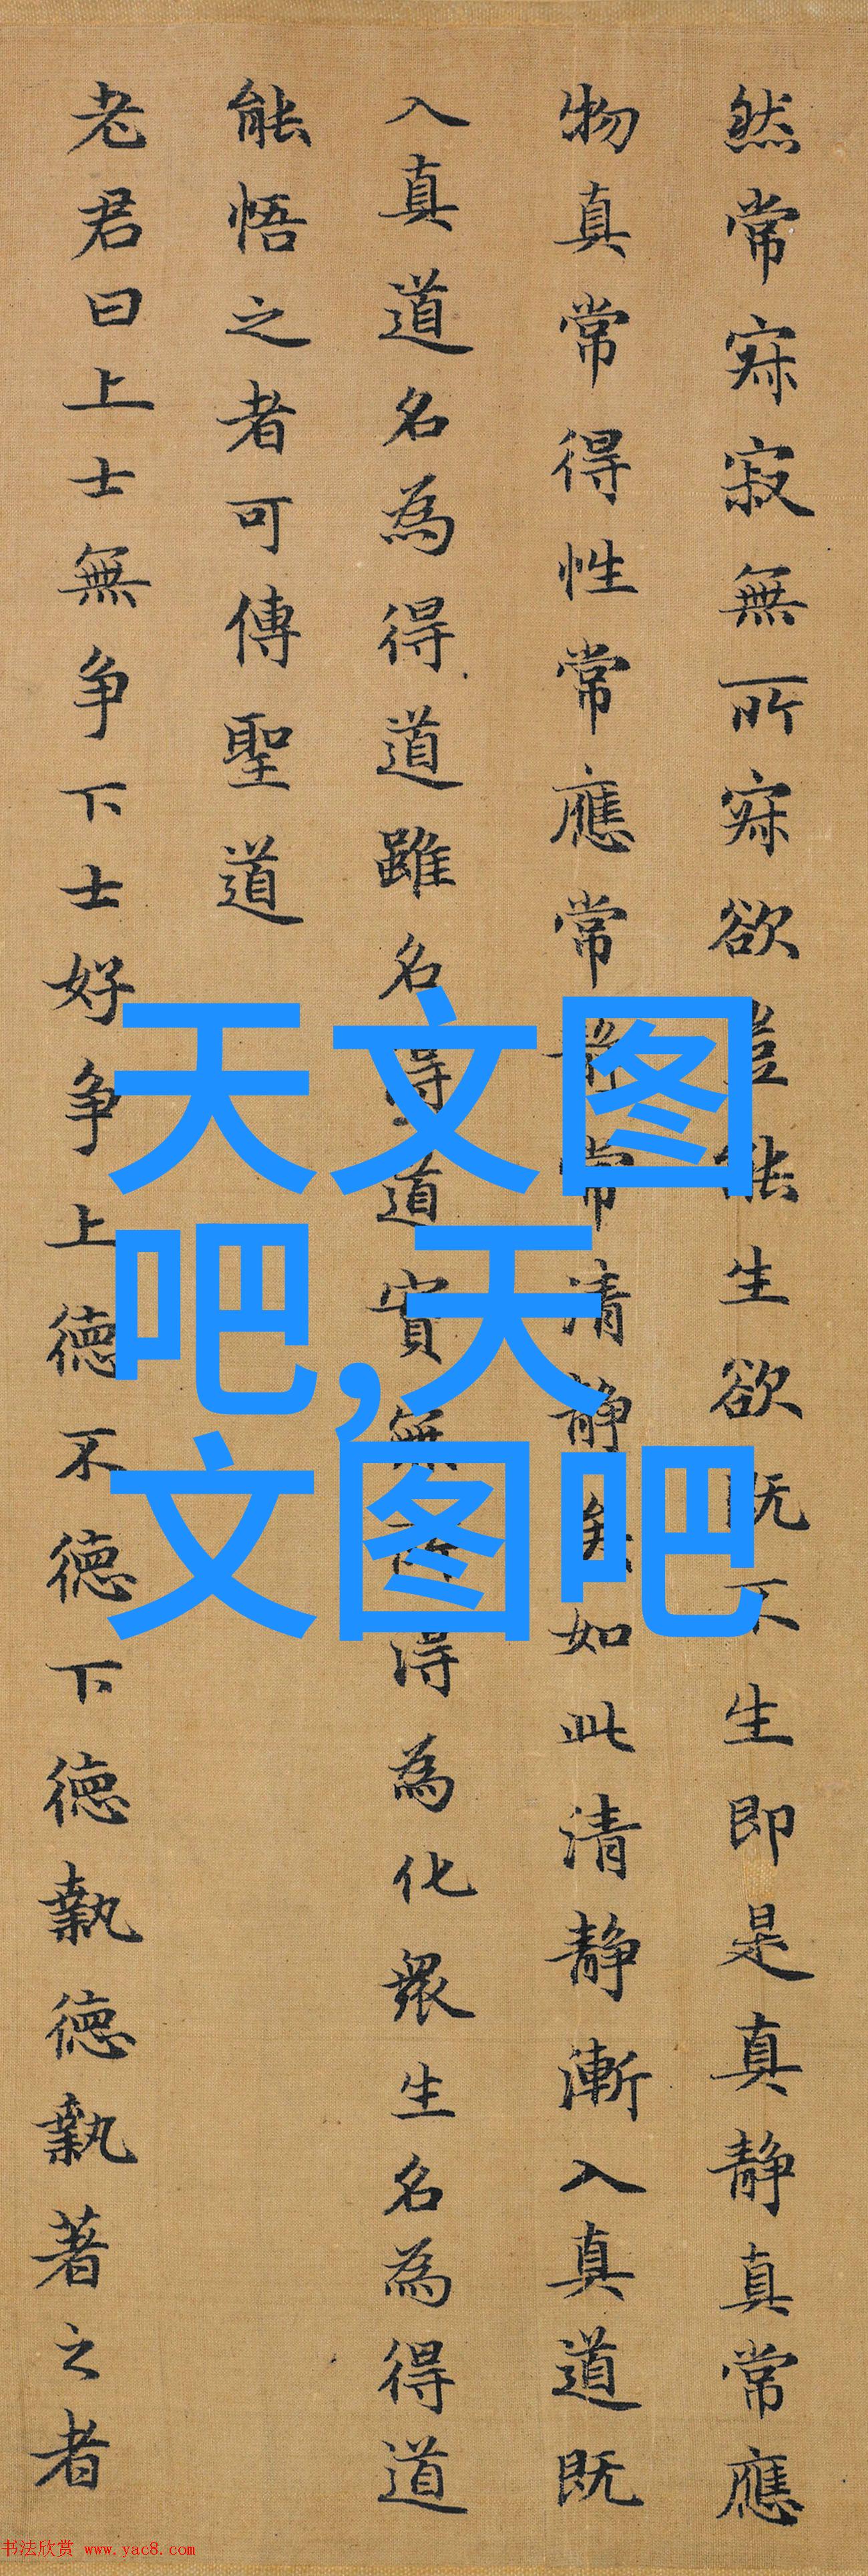 然常寂寂無所寂欲豈能生欲既不生即是真静真常應
物真常得性常應常静常清静矣如此清静漸入真道既
入真道名為得道雖名得道實無所得為化衆生名為得道
能悟之者可傳聖道
老君曰上士無争下士好争上德不德下德執德執著之者
天文图
吧,天
文图吧
书法欣赏 www.yac8.com